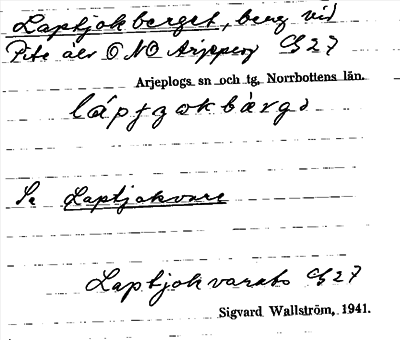 Laptjokberget, berg vid
Pite älv O N O Arjeplog G27
Arjeplogs sn och tg, Norrbottens län.
láptjokbärgə
Se Laptjokvare
Laptjokvarats G27
Sigvard Wallström, 1941.